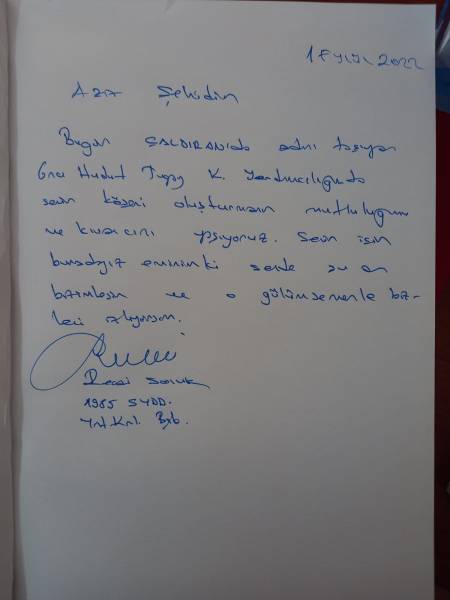 1 EYLÜL 2022
Aziz Şehidim
Bugün ÇALDIRAN'da adını taşıyan
Hudut Tugay K. Yardımcılığında
senin köşeni oluşturmanın mutluluğunu
ve kıvancını yaşıyoruz. Senin için
buradayız eminimki sende şu an
bizimlesin ve o gülümsemenle biz-
leri izliyorsun.
1985